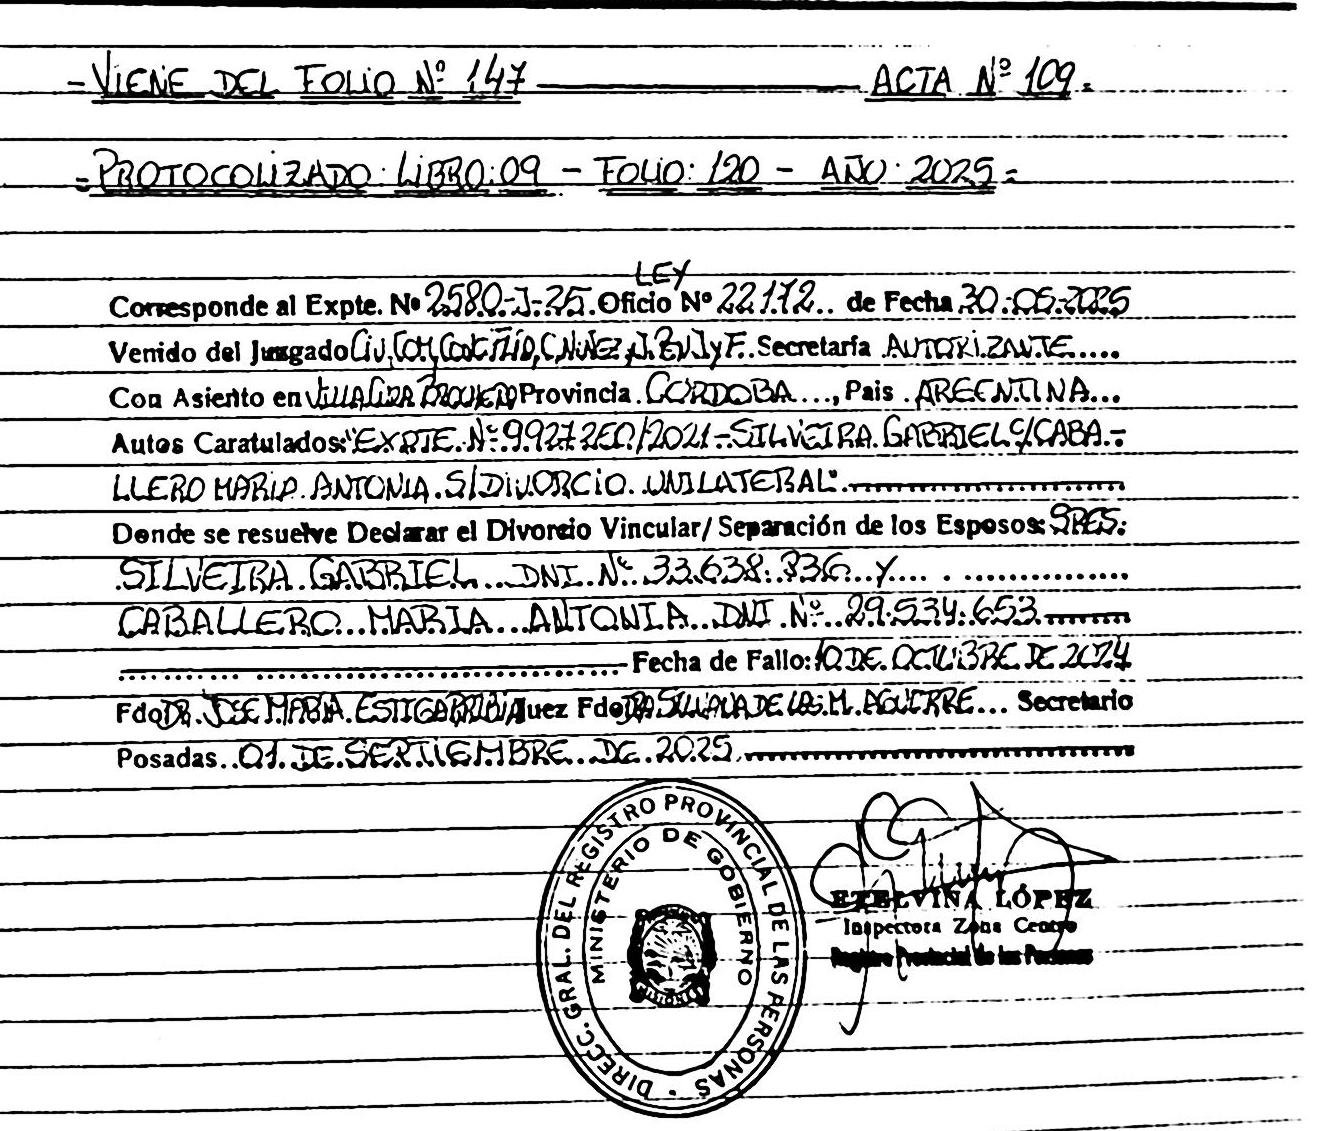 =VIENE DEL FOLIO Nº 147 ACTA Nº 109=
=PROTOCOLIZADO: LIBRO: 09 - FOLIO: 120 - AÑO: 2025=
LEY
Corresponde al Expte. Nº 2580-J-25. Oficio Nº 22.172.. de Fecha 30-05-2025
Venido del Juzgado Civ, Com, Conc, Flia, C, Niñez, J, P. Juv y F. Secretaría AUTORIZANTE.....
Con Asiento en VILLA CURA BROCHERO Provincia . CÓRDOBA...., Pais . ARGENTINA...
Autos Caratulados: "EXPTE. Nº 9927250/2021-SILVEIRA. GABRIEL C/ CABA.-
LLERO MARIA. ANTONIA. S/DIVORCIO. UNILATERAL".
Donde se resuelve Declarar el Divorcio Vincular/ Separación de los Esposos: SRES:
SILVEIRA. GABRIEL... DNI. Nº. 33.638.336.. Y....
CABALLERO... MARIA... ANTONIA.. DNI. Nº.. 29.534.653
Fecha de Fallo: 10 DE. OCTUBRE DE 2024
Fdo DR. JOSE MARIA. ESTIGARRIBIA Juez Fdo DRA. SILVANA DE LAS. M. AGUIRRE... Secretario
Posadas.. 01. DE. SEPTIEMBRE.. DE. 2025.
DIRECC. GRAL. DEL REGISTRO PROVINCIAL DE LAS PERSONAS
MINISTERIO DE GOBIERNO
ETELVINA LÓPEZ
Inspectora Zona Centro
Registro Provincial de las Personas